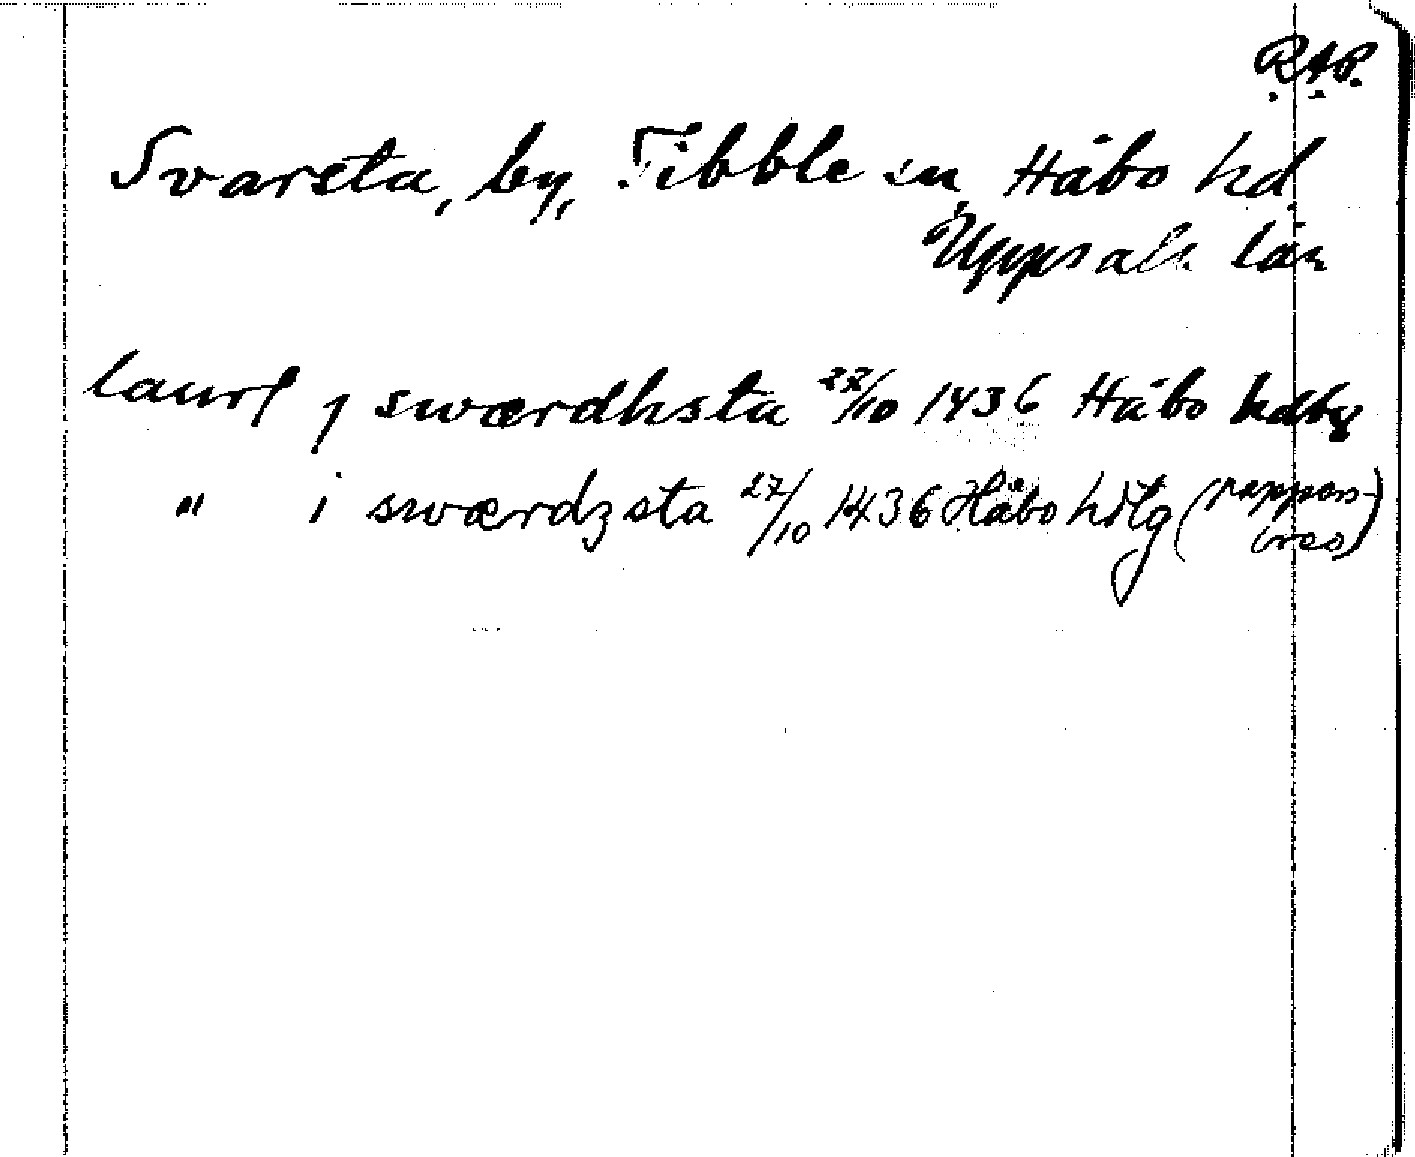 R.A.P.
Svarsta, by, Tibble sn, Håbo hd.
Uppsala län
laurſ j swærdhsta 27/10 1436 Håbo
" i swærdzsta 27/10 1436 Håbo hdtg (pappers-